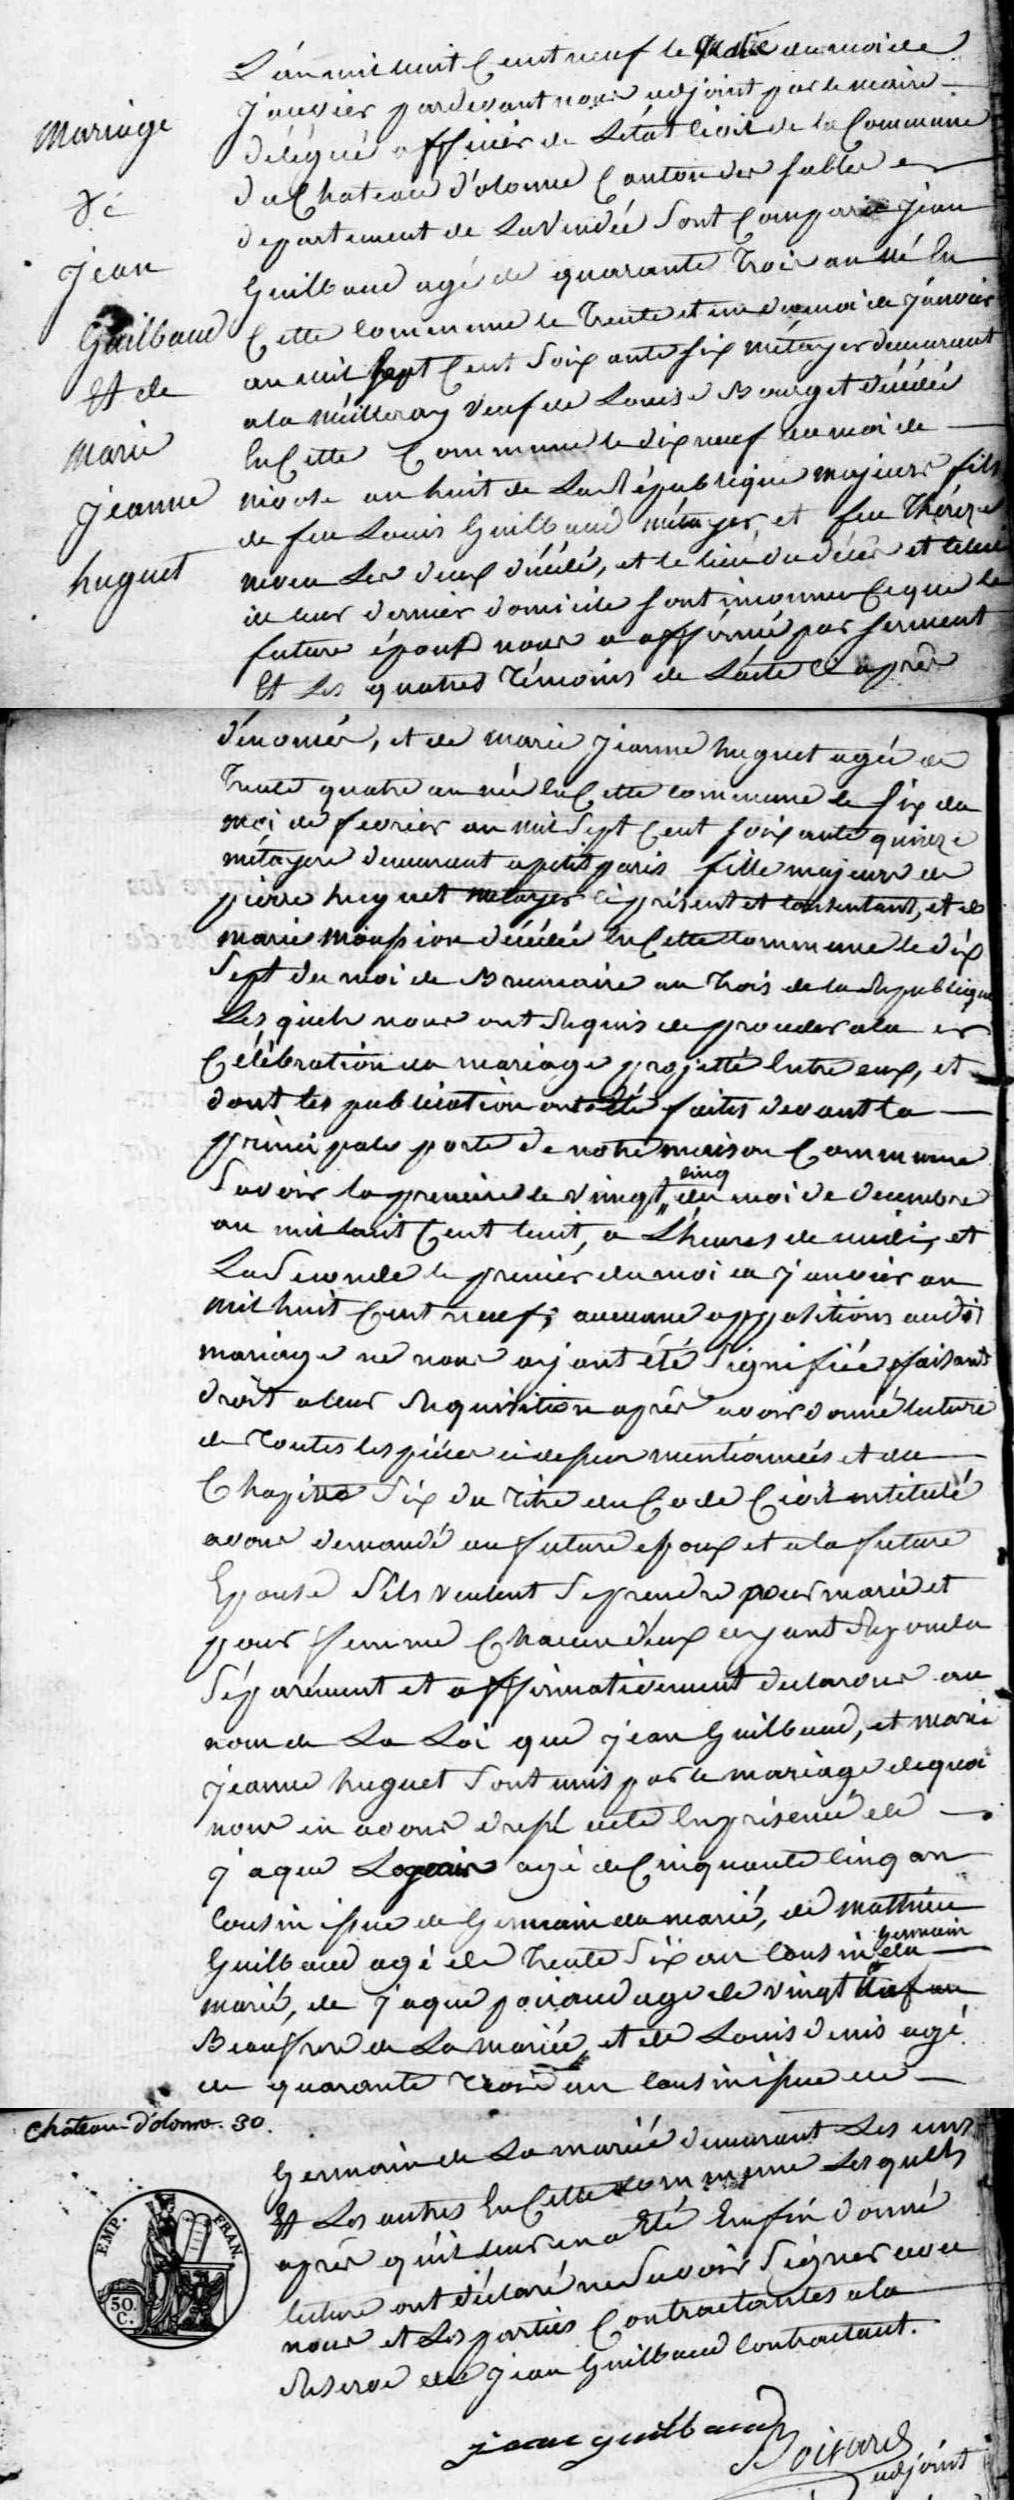 Mariage
de
jean
Guilbaud
Et de
marie
jeanne
huguet
L'an mil huit Cent neuf le du moi de
janvier pardevant nous adjoint par le maire
délégué officier de L'état Civil de la Commune
du Chateau d'olonne Canton des sables
departement de La Vendée Sont Comparu jean
Guilbaud agé de quarante trois an né En
Cette commune le trente et un du moi de janvier
an mil Sept Cent Soixante six métayer demeurant
a la Meilleray veuf de Louise Bourget décédée
En Cette Commune le dix neuf du moi de
nivose an huit de La République majeur fils
de feu Louis Guilbaud métayer, et feu thérèze
les deux décédé, et le lieu du décès et celui
de leur dernier domicile sont inconnu Ce que le
future époux nous a affirmé par serment
Et Les quatres témoins de L'acte ci après
dénomés, et de marie jeanne huguet agée de
trente quatre an né En Cette commune le six du
moi de fevrier an mil Sept Cent soixante quinze
métayere demeurant a petit paris fille majeure de
pierre huguet metayer ci présent et consentant, et de
marie décédée En Cette commune le dix
Sept du moi de Brumaire an trois de la Republique
Les quels nous ont Requis de proceder a la
Célébration du mariage projetté Entre eux, et
dont les publication ont été faites devant la
principale porte de notre maison Commune
Savoir la premiere le vingt cinq du moi de decembre
an mil huit Cent huit, a L'heures de midi, et
La Seconde le premier du moi de janvier an
mil huit Cent neuf, aucune oppositions audit
mariage ne nous ayant été Signifiée faisant
droit a leur Requisition après avoir donné lecture
de toutes les pièces ci dessus mentionnées et du
Chapitre Six du titre du Code Civil intitulé
avons demandé au future epoux et a la future
Epouse S'ils veulent Se prendre pour marié et
pour femme Chacun d'eux ayant Repondu
Séparément et affirmativement declarons au
nom de La Loi que jean Guilbaud, et marie
jeanne huguet Sont unis par le mariage de quoi
nous en avons dressé acte En présence de
jaque agé de Cinquante Cinq an
Cousin issue de Germain du marié, de mathieu
Guilbaud agé de trente Six an Cousin germain du
marié, de jaque poiraud agé de vingt an
Beaufrere de La mariée, et de Louis denis agé
de quarante trois an Cousin issue de
Chateau-d'olonne. 30.
EMP. FRAN.
50.
C.
Germain de La mariée demeurant Les uns
Et Les autres En Cette commune Lesquels
après qu'il leur en a été Enfin donné
lecture ont déclaré ne Savoir Signer avec
nous et Les parties Contractantes a la
Reserve de jean Guilbaud Contractant.
jean guilbaud
Boitard
adjoint